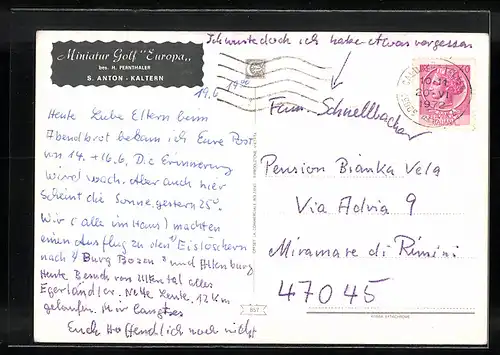 Miniatur Golf "Europa„
bes. H. PERNTHALER
S. ANTON - KALTERN
Ich wusste doch ich habe etwas vergessen
19.6
Heute Liebe Eltern beim
Abendbrot bekam ich Eure Post
von 14. + 16.6. Die Erinnerung
wird wach. Aber auch hier
scheint die Sonne, gestern 25°.
Wir (alle im Haus) machten
einen Ausflug zu den "Eislöchern
nach "Burg Bozen" und Altenburg
Heute Besuch von Ulltental alles
Egerländler. Nette Leute. 12 Km
gelaufen. Mir langt es
Euch Hoffendlich noch nicht
Fam. Schnellbacher
Pension Bianka Vela
Via Advia 9
Miramare di Rimini
47045
1972
857